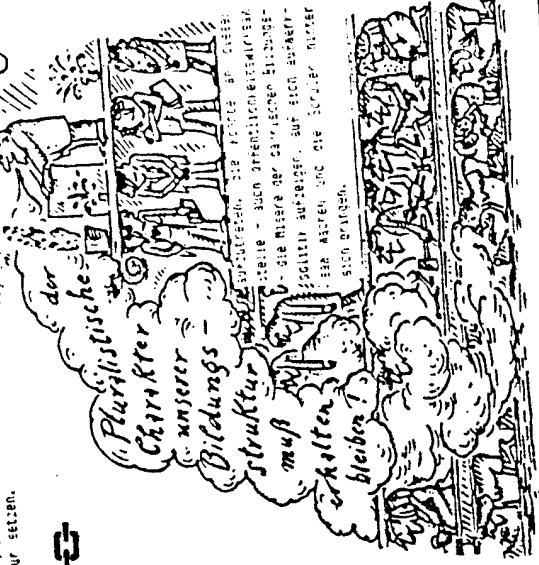 ur setzen.
der
Pluralistische
Charakter
unserer
Bildungs-
struktur
muß
erhalten
bleiben!
könnte an dieser
Stelle - auch öffentlichkeitswirksam
- die Misere der bayrischen Bildungs-
politik aufzeigen, auf sich aufmerk-
sam machen und die Schüler hinter
sich bringen.